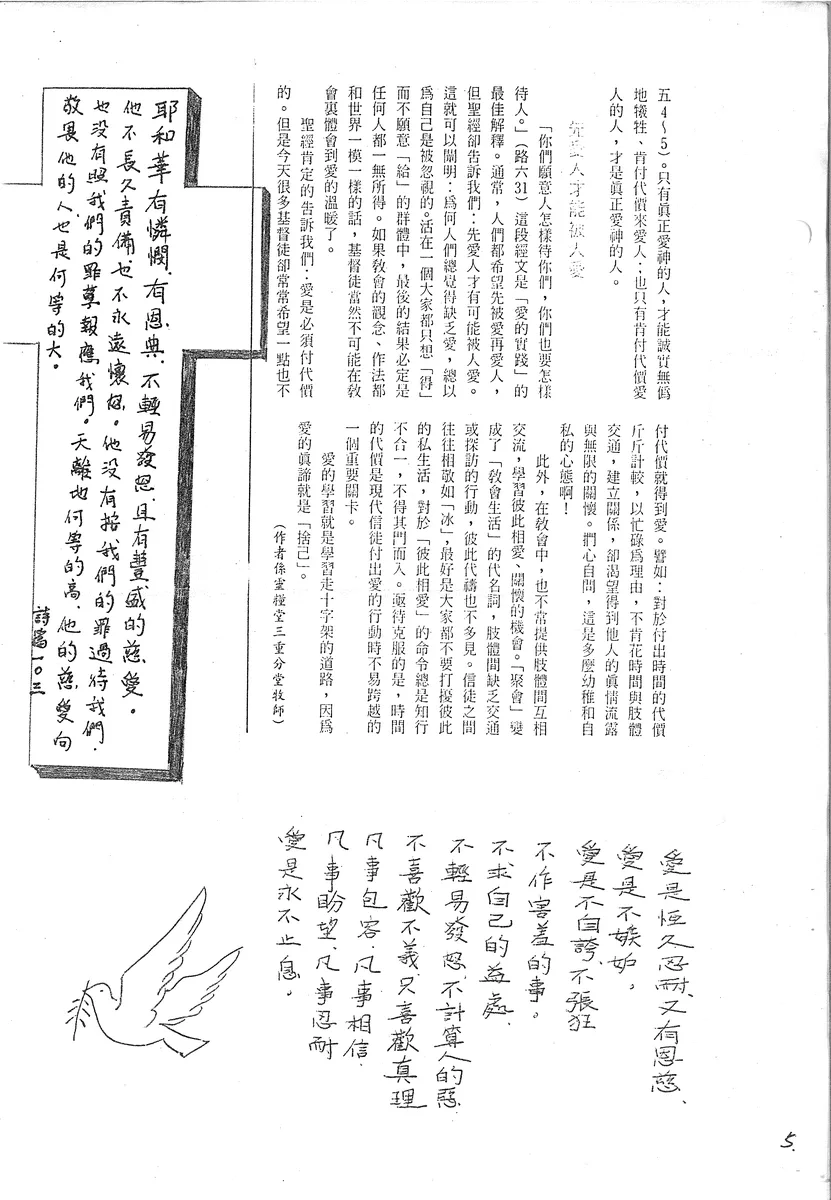 五4～5）。只有眞正愛神的人，才能誠實無僞
地犧牲、肯付代價來愛人；也只有肯付代價愛
人的人，才是眞正愛神的人。
先愛人才能被人愛
「你們願意人怎樣待你們，你們也要怎樣
待人。」（路六31）這段經文是「愛的實踐」的
最佳解釋。通常，人們都希望先被愛再愛人，
但聖經卻告訴我們：先愛人才有可能被人愛。
這就可以闡明：爲何人們總覺得缺乏愛，總以
爲自己是被忽視的。活在一個大家都只想「得」
而不願意「給」的群體中，最後的結果必定是
任何人都一無所得。如果敎會的觀念、作法都
和世界一模一樣的話，基督徒當然不可能在敎
會裏體會到愛的溫暖了。
聖經肯定的告訴我們：愛是必須付代價
的。但是今天很多基督徒卻常常希望一點也不
付代價就得到愛。譬如：對於付出時間的代價
斤斤計較，以忙碌爲理由，不肯花時間與肢體
交通，建立關係，卻渴望得到他人的眞情流露
與無限的關懷。捫心自問，這是多麼幼稚和自
私的心態啊！
此外，在敎會中，也不常提供肢體間互相
交流，學習彼此相愛、關懷的機會。「聚會」變
成了「敎會生活」的代名詞，肢體間缺乏交通
或探訪的行動，彼此代禱也不多見。信徒之間
往往相敬如「冰」，最好是大家都不要打擾彼此
的私生活，對於「彼此相愛」的命令總是知行
不合一，不得其門而入。亟待克服的是，時間
的代價是現代信徒付出愛的行動時不易跨越的
一個重要關卡。
愛的學習就是學習走十字架的道路，因爲
愛的眞諦就是「捨己」。
（作者係靈糧堂三重分堂牧師）
耶和華有憐憫、有恩典、不輕易發怒、且有豐盛的慈愛。
他不長久責備也不永遠懷怒。他沒有按我們的罪過待我們、
也沒有照我們的罪孽報應我們。天離地何等的高、他的慈愛向
敬畏他的人也是何等的大。
詩篇一〇三
愛是恆久忍耐、又有恩慈、
愛是不嫉妒，
愛是不自誇、不張狂
不作害羞的事。
不求自己的益處、
不輕易發怒、不計算人的惡
不喜歡不義、只喜歡真理
凡事包容、凡事相信、
凡事盼望、凡事忍耐
愛是永不止息。
5.